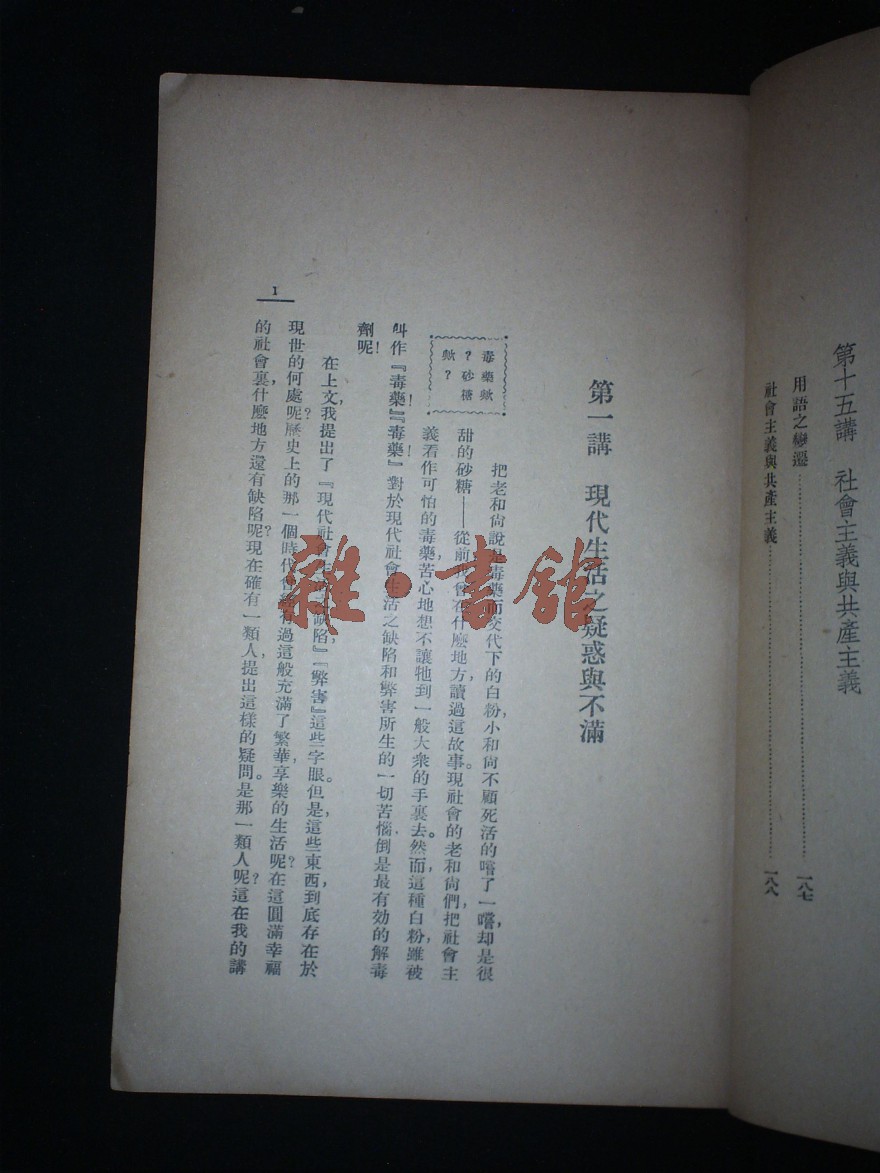 第十五講　社會主義與共產主義
用語之變遷……………………一八七
社會主義與共產主義……………………一八八
第一講　現代生活之疑惑與不滿
毒藥歟
？砂糖
歟？
把老和尙說是毒藥而交代下的白粉，小和尙不顧死活的嚐了一嚐，却是很
甜的砂糖——從前我曾在什麽地方，讀過這故事。現社會的老和尙們，把社會主
義看作可怕的毒藥，苦心地想不讓牠到一般大衆的手裏去。然而，這種白粉雖被
叫作『毒藥！』『毒藥！』對於現代社會生活之缺陷和弊害所生的一切苦惱，倒是最有効的解毒
劑呢！
在上文，我提出了『現代社會生活之缺陷』『弊害』這些字眼。但是，這些東西，到底存在於
現世的何處呢？歷史上的那一個時代曾經有過這般充滿了繁華，享樂的生活呢？在這圓滿幸福
的社會裏，什麽地方還有缺陷呢？現在確有一類人，提出這樣的疑問。是那一類人呢？這在我的講
1
雜·書館